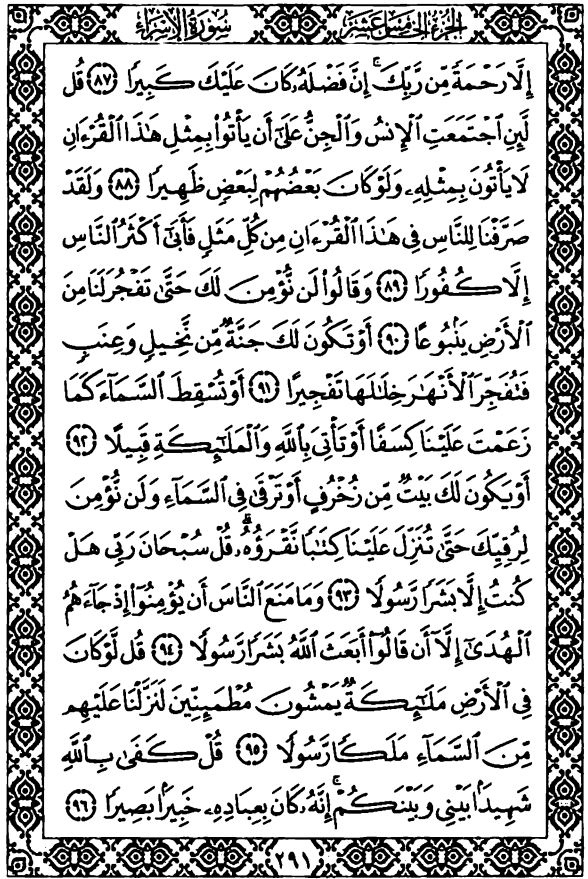 الجزء الخامس عشر سورة الإسراء
إِلَّا رَحْمَةً مِّن رَّبِّكَ ۚ إِنَّ فَضْلَهُۥ كَانَ عَلَيْكَ كَبِيرًا ٨٧ قُل
لَّئِنِ ٱجْتَمَعَتِ ٱلْإِنسُ وَٱلْجِنُّ عَلَىٰٓ أَن يَأْتُوا۟ بِمِثْلِ هَٰذَا ٱلْقُرْءَانِ
لَا يَأْتُونَ بِمِثْلِهِۦ وَلَوْ كَانَ بَعْضُهُمْ لِبَعْضٍ ظَهِيرًا ٨٨ وَلَقَدْ
صَرَّفْنَا لِلنَّاسِ فِى هَٰذَا ٱلْقُرْءَانِ مِن كُلِّ مَثَلٍ فَأَبَىٰٓ أَكْثَرُ ٱلنَّاسِ
إِلَّا كُفُورًا ٨٩ وَقَالُوا۟ لَن نُّؤْمِنَ لَكَ حَتَّىٰ تَفْجُرَ لَنَا مِنَ
ٱلْأَرْضِ يَنۢبُوعًا ٩٠ أَوْ تَكُونَ لَكَ جَنَّةٌ مِّن نَّخِيلٍ وَعِنَبٍ
فَتُفَجِّرَ ٱلْأَنْهَٰرَ خِلَٰلَهَا تَفْجِيرًا ٩١ أَوْ تُسْقِطَ ٱلسَّمَآءَ كَمَا
زَعَمْتَ عَلَيْنَا كِسَفًا أَوْ تَأْتِىَ بِٱللَّهِ وَٱلْمَلَٰٓئِكَةِ قَبِيلًا ٩٢
أَوْ يَكُونَ لَكَ بَيْتٌ مِّن زُخْرُفٍ أَوْ تَرْقَىٰ فِى ٱلسَّمَآءِ وَلَن نُّؤْمِنَ
لِرُقِيِّكَ حَتَّىٰ تُنَزِّلَ عَلَيْنَا كِتَٰبًا نَّقْرَؤُهُۥ ۗ قُلْ سُبْحَانَ رَبِّى هَلْ
كُنتُ إِلَّا بَشَرًا رَّسُولًا ٩٣ وَمَا مَنَعَ ٱلنَّاسَ أَن يُؤْمِنُوٓا۟ إِذْ جَآءَهُمُ
ٱلْهُدَىٰٓ إِلَّآ أَن قَالُوٓا۟ أَبَعَثَ ٱللَّهُ بَشَرًا رَّسُولًا ٩٤ قُل لَّوْ كَانَ
فِى ٱلْأَرْضِ مَلَٰٓئِكَةٌ يَمْشُونَ مُطْمَئِنِّينَ لَنَزَّلْنَا عَلَيْهِم
مِّنَ ٱلسَّمَآءِ مَلَكًا رَّسُولًا ٩٥ قُلْ كَفَىٰ بِٱللَّهِ
شَهِيدًۢا بَيْنِى وَبَيْنَكُمْ ۚ إِنَّهُۥ كَانَ بِعِبَادِهِۦ خَبِيرًۢا بَصِيرًا ٩٦
٢٩١